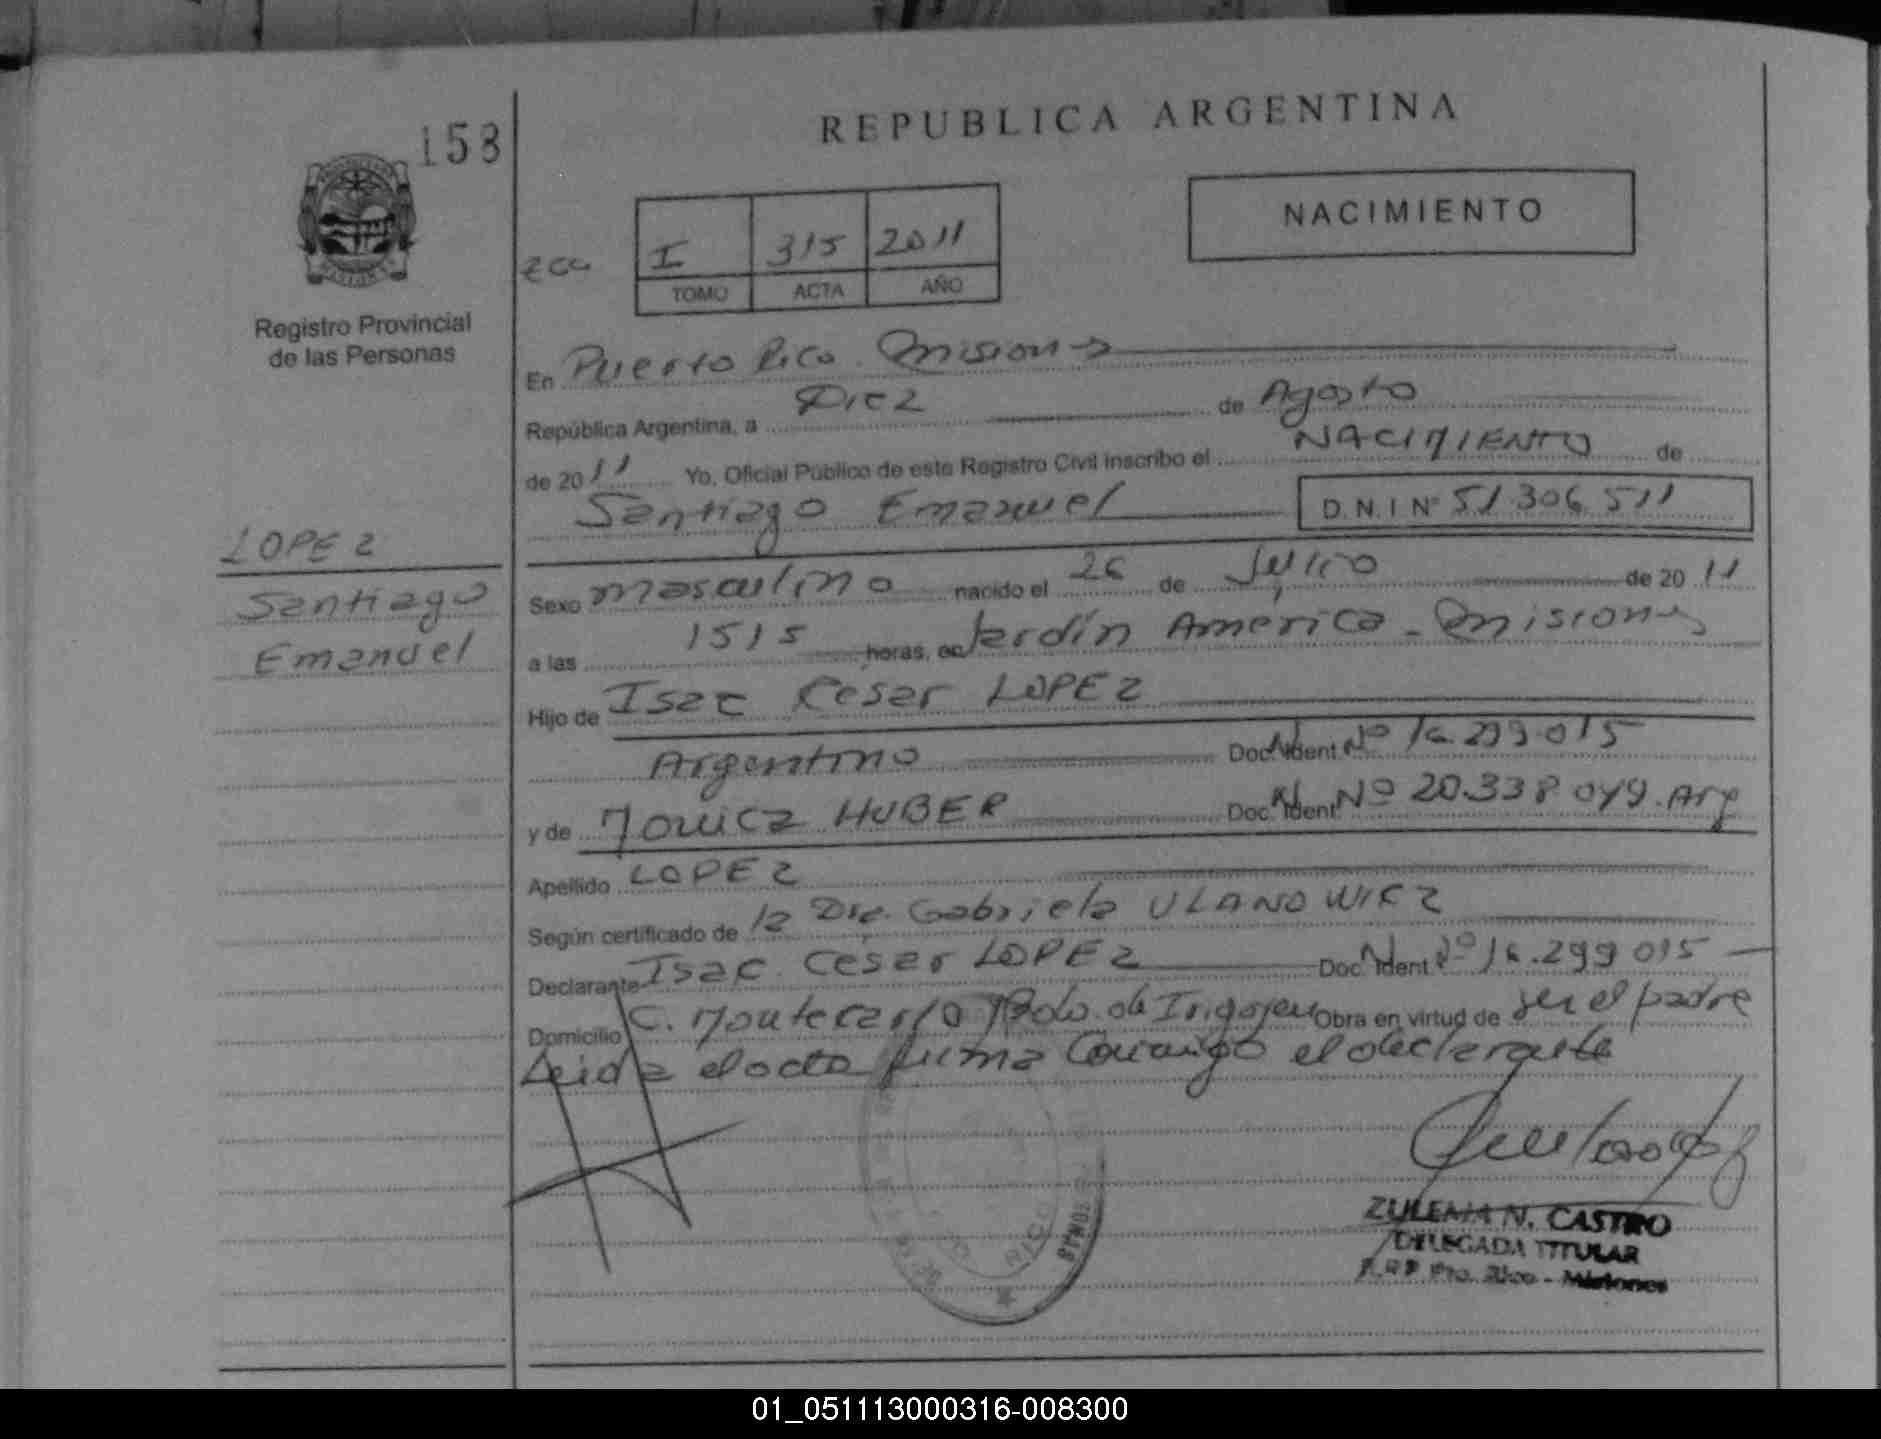 158
REPUBLICA ARGENTINA
NACIMIENTO
I 315 2011
TOMO ACTA AÑO
Registro Provincial
de las Personas
En Puerto Rico Misiones
República Argentina, a Diez de Agosto
de 2011 Yo, Oficial Público de este Registro Civil inscribo el NACIMIENTO de
Santiago Emanuel D.N.I Nº 51.306.511
LOPEZ
Santiago
Emanuel
Sexo masculino nacido el 26 de Julio de 2011
a las 1515 horas, en Jardín América - Misiones
Hijo de Isac César LOPEZ
Argentino Doc. Ident. Nº 16.299.015
y de Monica HUBER Doc. Ident. Nº 20.338.049. Arg
Apellido LOPEZ
Según certificado de la Dra. Gabriela ULANOWICZ
Declarante Isac César LOPEZ Doc. Ident. Nº 16.299.015
Domicilio C. Montecarlo de Irigoyen Obra en virtud de ser el padre
Leida el acta firma Conmigo el declarante
RICO
ZULEMA N. CASTRO
DELEGADA TITULAR
R.P.P Pto. Rico - Misiones
01_051113000316-008300